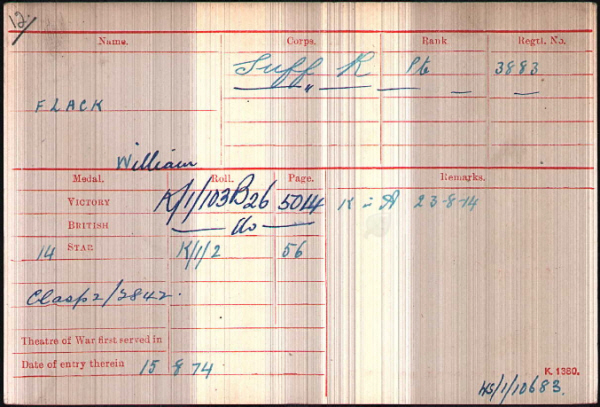 12/
Name. Corps. Rank Regtl. No.
Suff R Pte 3883
" — — —
FLACK
William
Medal. Roll. Page. Remarks.
VICTORY K/1/103B26 5014 K = A 23-8-14
BRITISH — do —
14 STAR K/1/2 56
Clasp 2/3842.
Theatre of War first served in
Date of entry therein 15 8 14
K. 1380.
KS/1/10683.